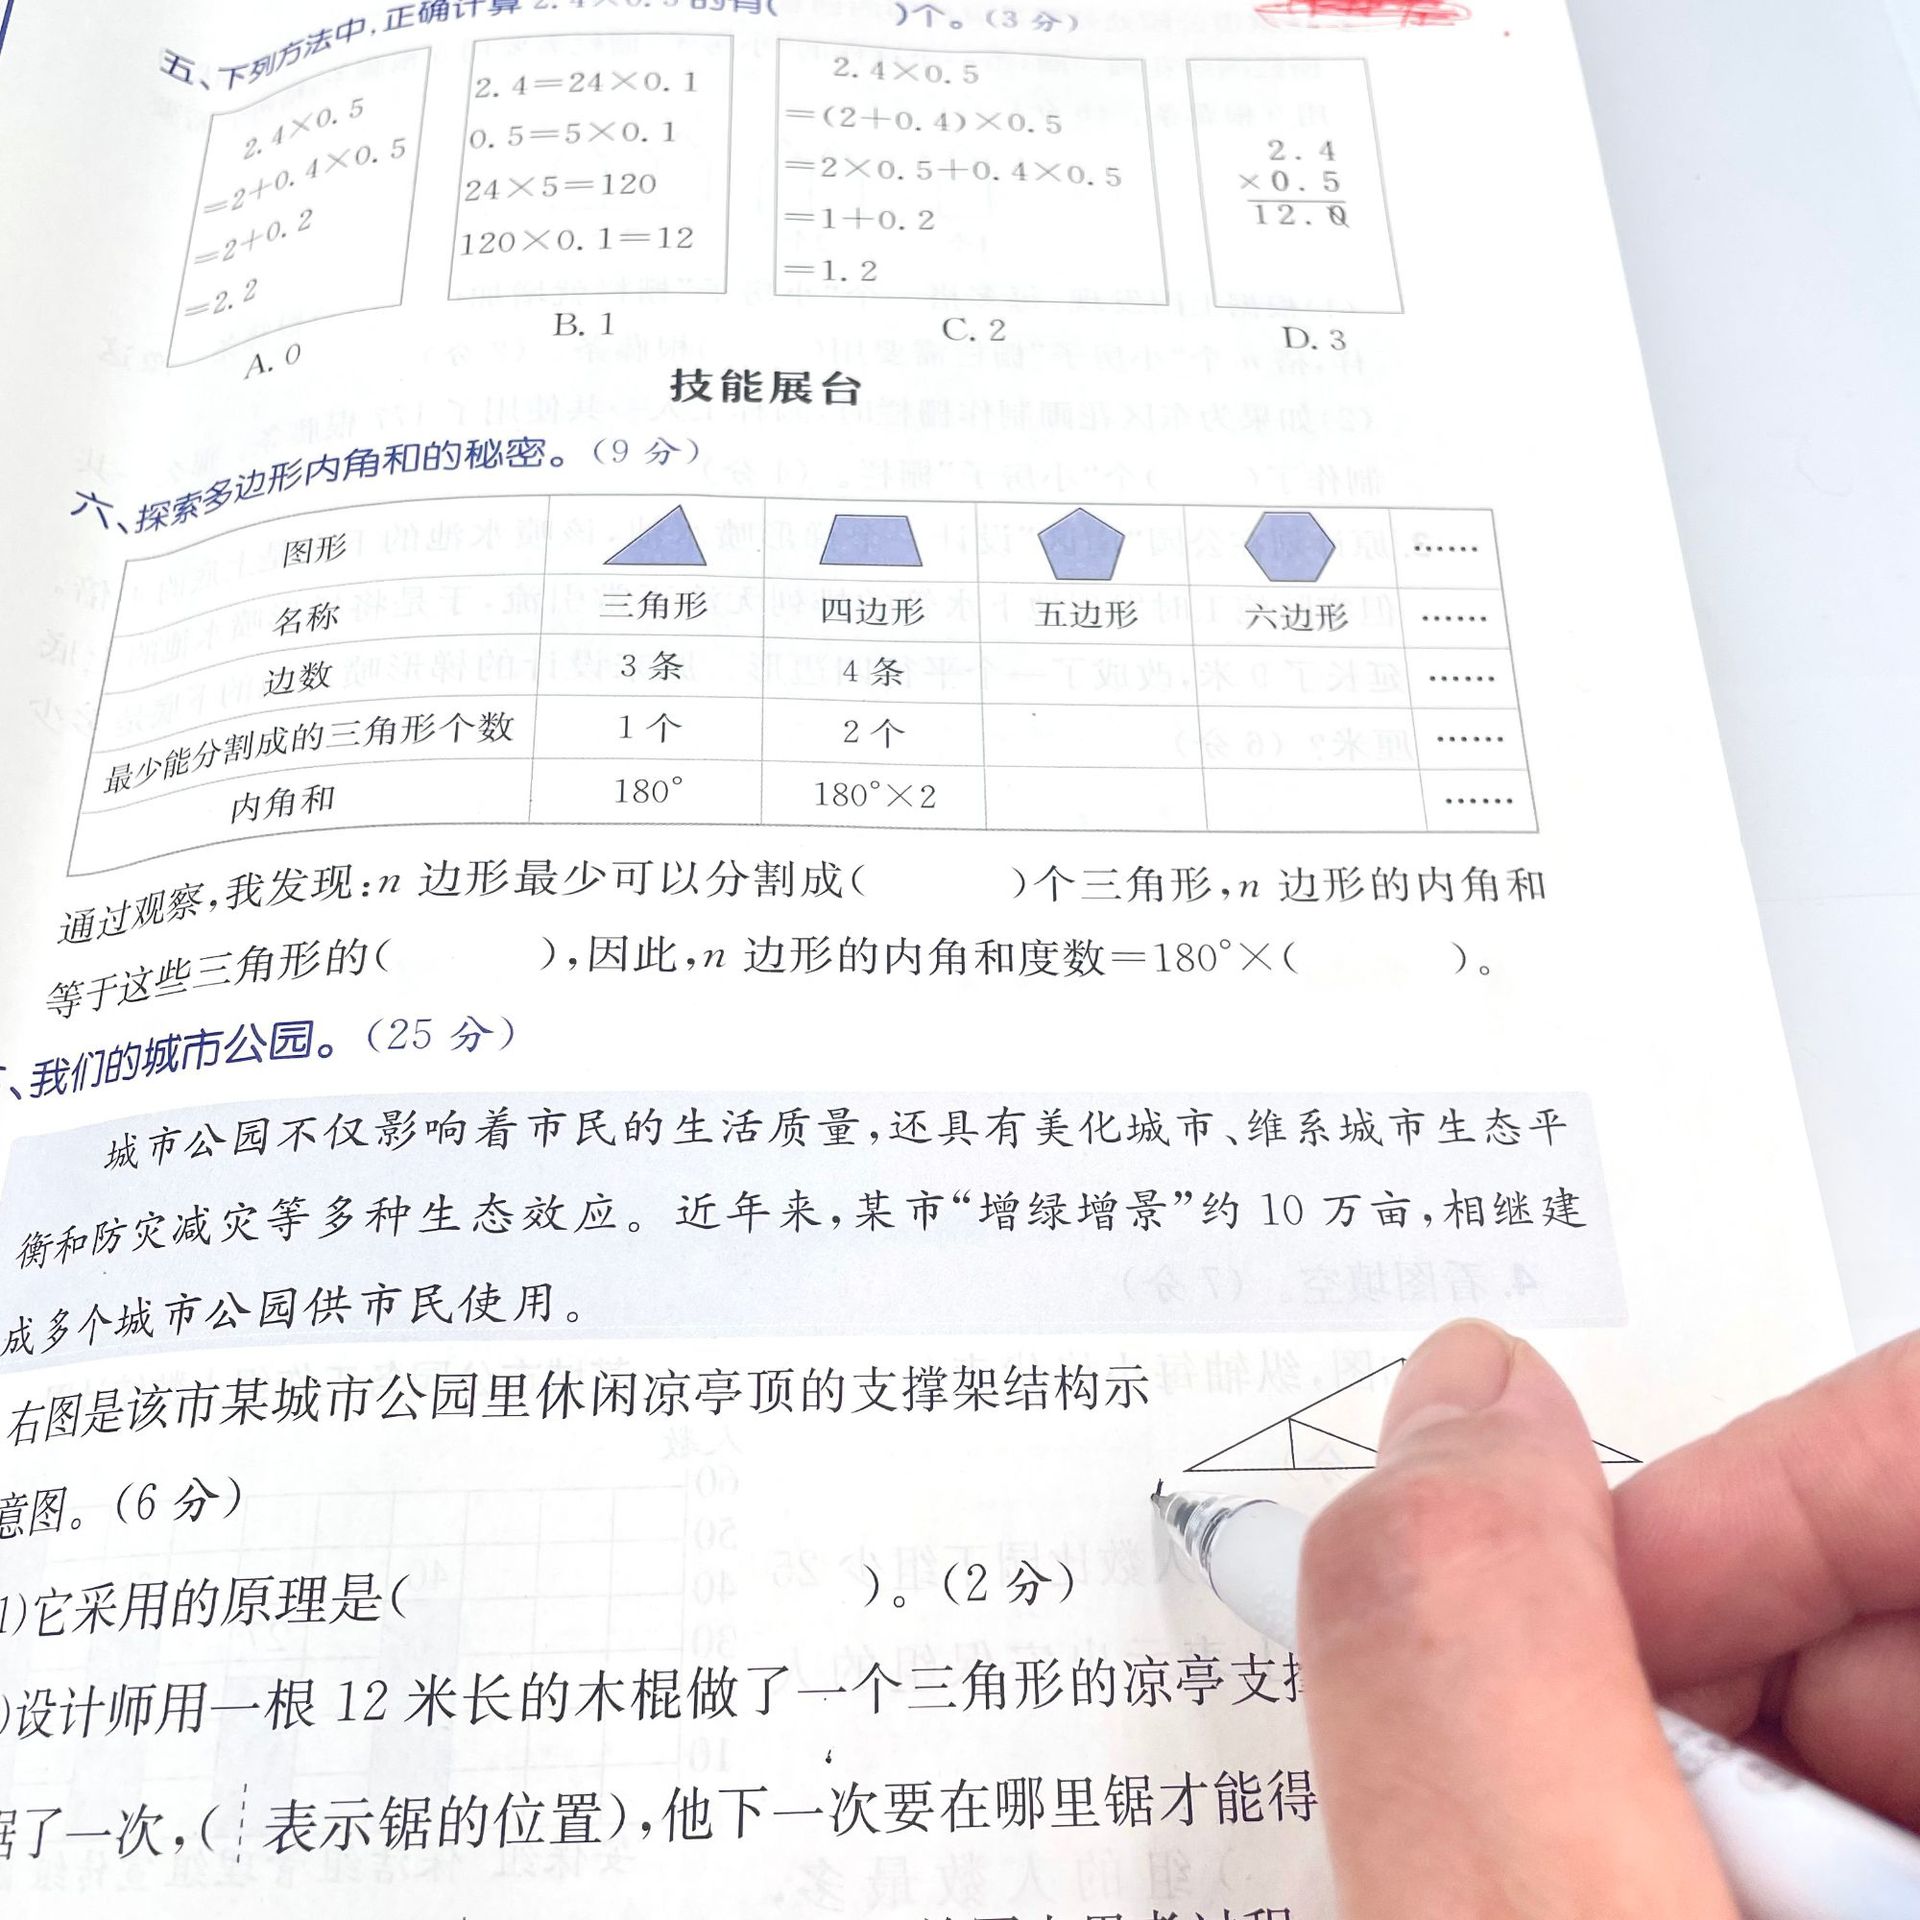 五、下列方法中,正确计算 2.4×0.5 的有(    )个。(3 分)
2.4×0.5
=2+0.4×0.5
=2+0.2
=2.2
2.4=24×0.1
0.5=5×0.1
24×5=120
120×0.1=12
2.4×0.5
=(2+0.4)×0.5
=2×0.5+0.4×0.5
=1+0.2
=1.2
2.4
×0.5
12.0
A.0 B.1 C.2 D.3
技能展台
六、探索多边形内角和的秘密。(9 分)
图形 ……
名称 三角形 四边形 五边形 六边形 ……
边数 3 条 4 条 ……
最少能分割成的三角形个数 1 个 2 个 ……
内角和 180° 180°×2 ……
通过观察,我发现:n 边形最少可以分割成(    )个三角形,n 边形的内角和
等于这些三角形的(    ),因此,n 边形的内角和度数=180°×(    )。
、我们的城市公园。(25 分)
城市公园不仅影响着市民的生活质量,还具有美化城市、维系城市生态平
衡和防灾减灾等多种生态效应。近年来,某市“增绿增景”约 10 万亩,相继建
成多个城市公园供市民使用。
右图是该市某城市公园里休闲凉亭顶的支撑架结构示
意图。(6 分)
1)它采用的原理是(    )。(2 分)
)设计师用一根 12 米长的木棍做了一个三角形的凉亭支撑
锯了一次,(┆表示锯的位置),他下一次要在哪里锯才能得